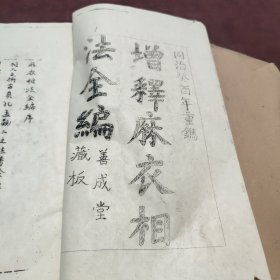 同治癸酉年重鐫
增釋麻衣相
法全編
善成堂
藏板
麻衣相法全編序